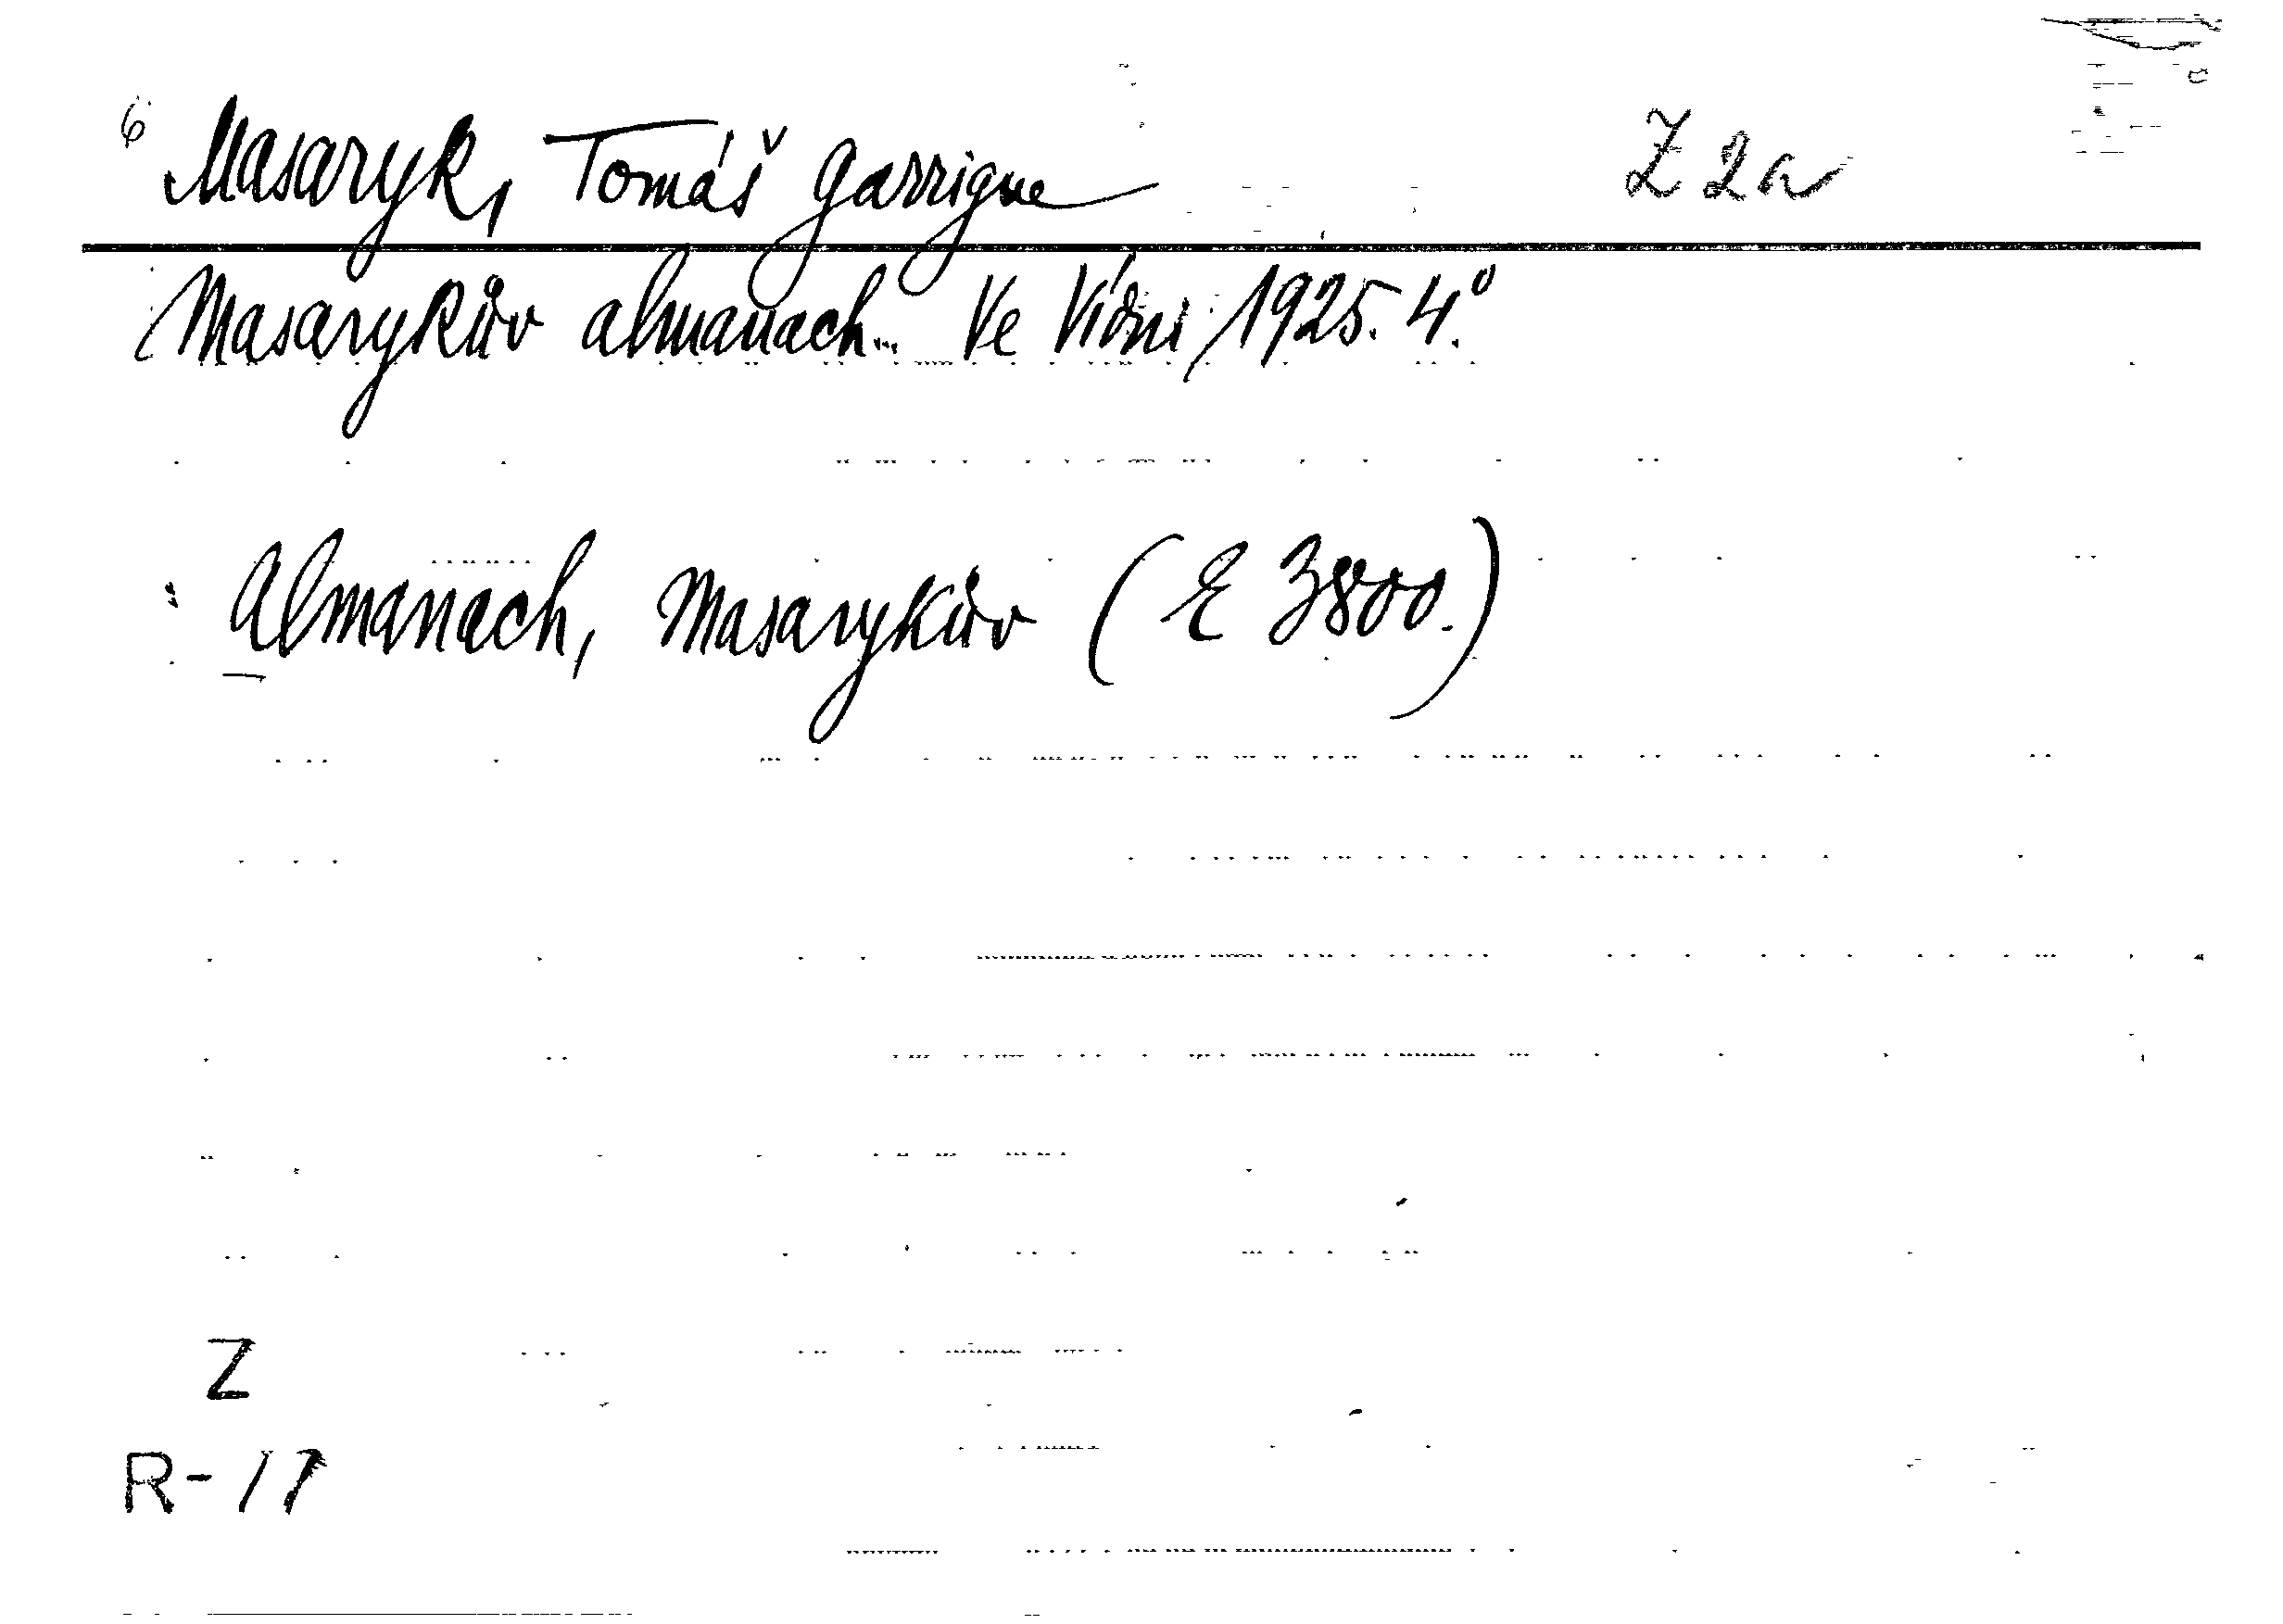 6 Masaryk, Tomáš Garrigue Z 2a
Masarykův almanach... Ve Vídni 1925. 4.°
Almanach, Masarykův (E 3800.)
Z
R-17